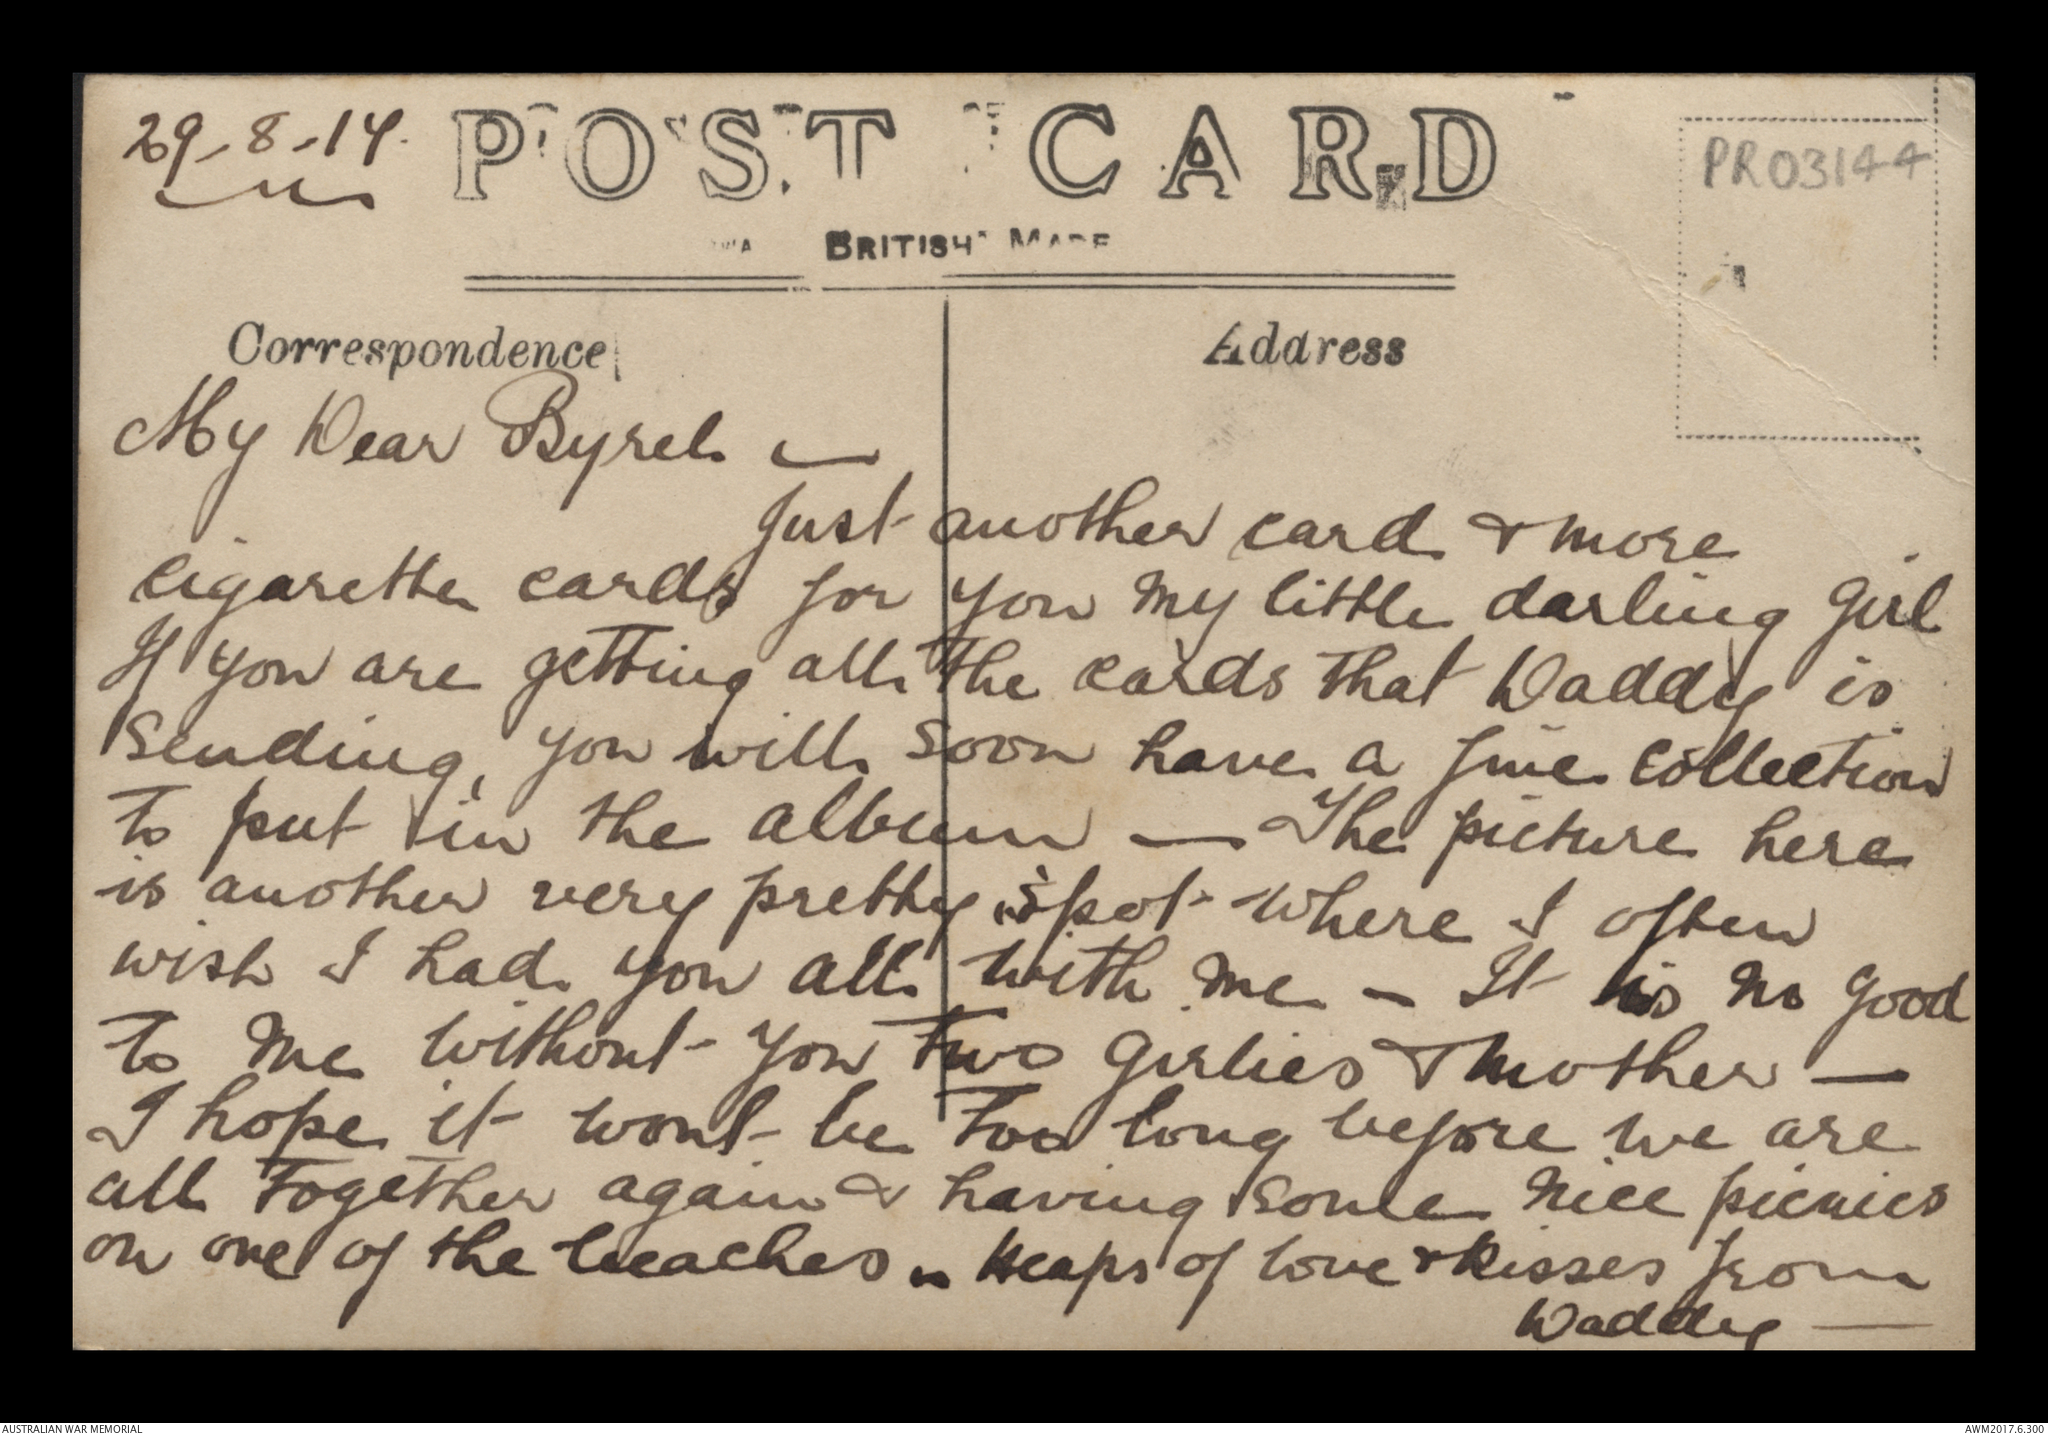 29-8-17.
POST CARD
PR03144
BRITISH MADE
Correspondence
Address
My Dear Byrel —
Just another card & more
cigarette cards for you my little darling girl
If you are getting all the cards that Daddy is
sending, you will soon have a fine collection
to put in the album — The picture here
is another very pretty spot where I often
wish I had you all with me — It is no good
to me without you two girlies & mother —
I hope it wont be too long before we are
all together again & having some nice picnics
on one of the beaches - Heaps of love & kisses from
Daddy —
AUSTRALIAN WAR MEMORIAL
AWM2017.6.300